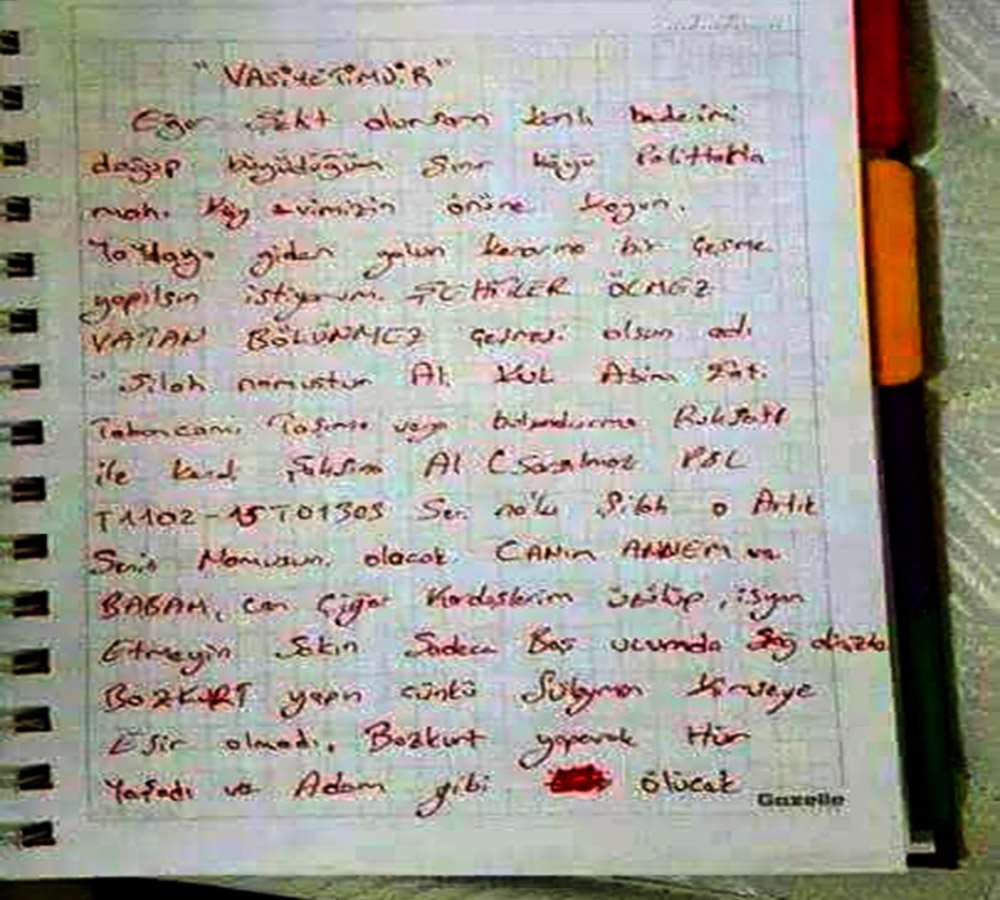 "VASİYETİMDİR"
Eğer Şehit olursam kanlı bedenimi
doğup büyüdüğüm Sınır köyü
mah. Köy evimizin önüne koyun.
Yaylaya giden yolun kenarına bir Çeşme
yapılsın istiyorum. ŞEHİTLER ÖLMEZ
VATAN BÖLÜNMEZ Çeşmesi olsun adı
"Silah namustur Al. KUL Abim Zati
Tabancamı Taşıma veya bulundurma Ruhsatı
ile kendi Al (Sarsılmaz P8L
T1102-15T01305 Seri no'lu Silah o Artık
Senin Namusun olacak. CANım ANNEM ve
BABAM, can Çiğer Kardeşlerim üzülüp, isyan
Etmeyin Sakın Sadece Baş ucumda Sağ
BOZKURT yapın çünkü Süleyman Kimseye
Esir olmadı, Bozkurt yaparak Hür
Yaşadı ve Adam gibi ölücek
Gazelle